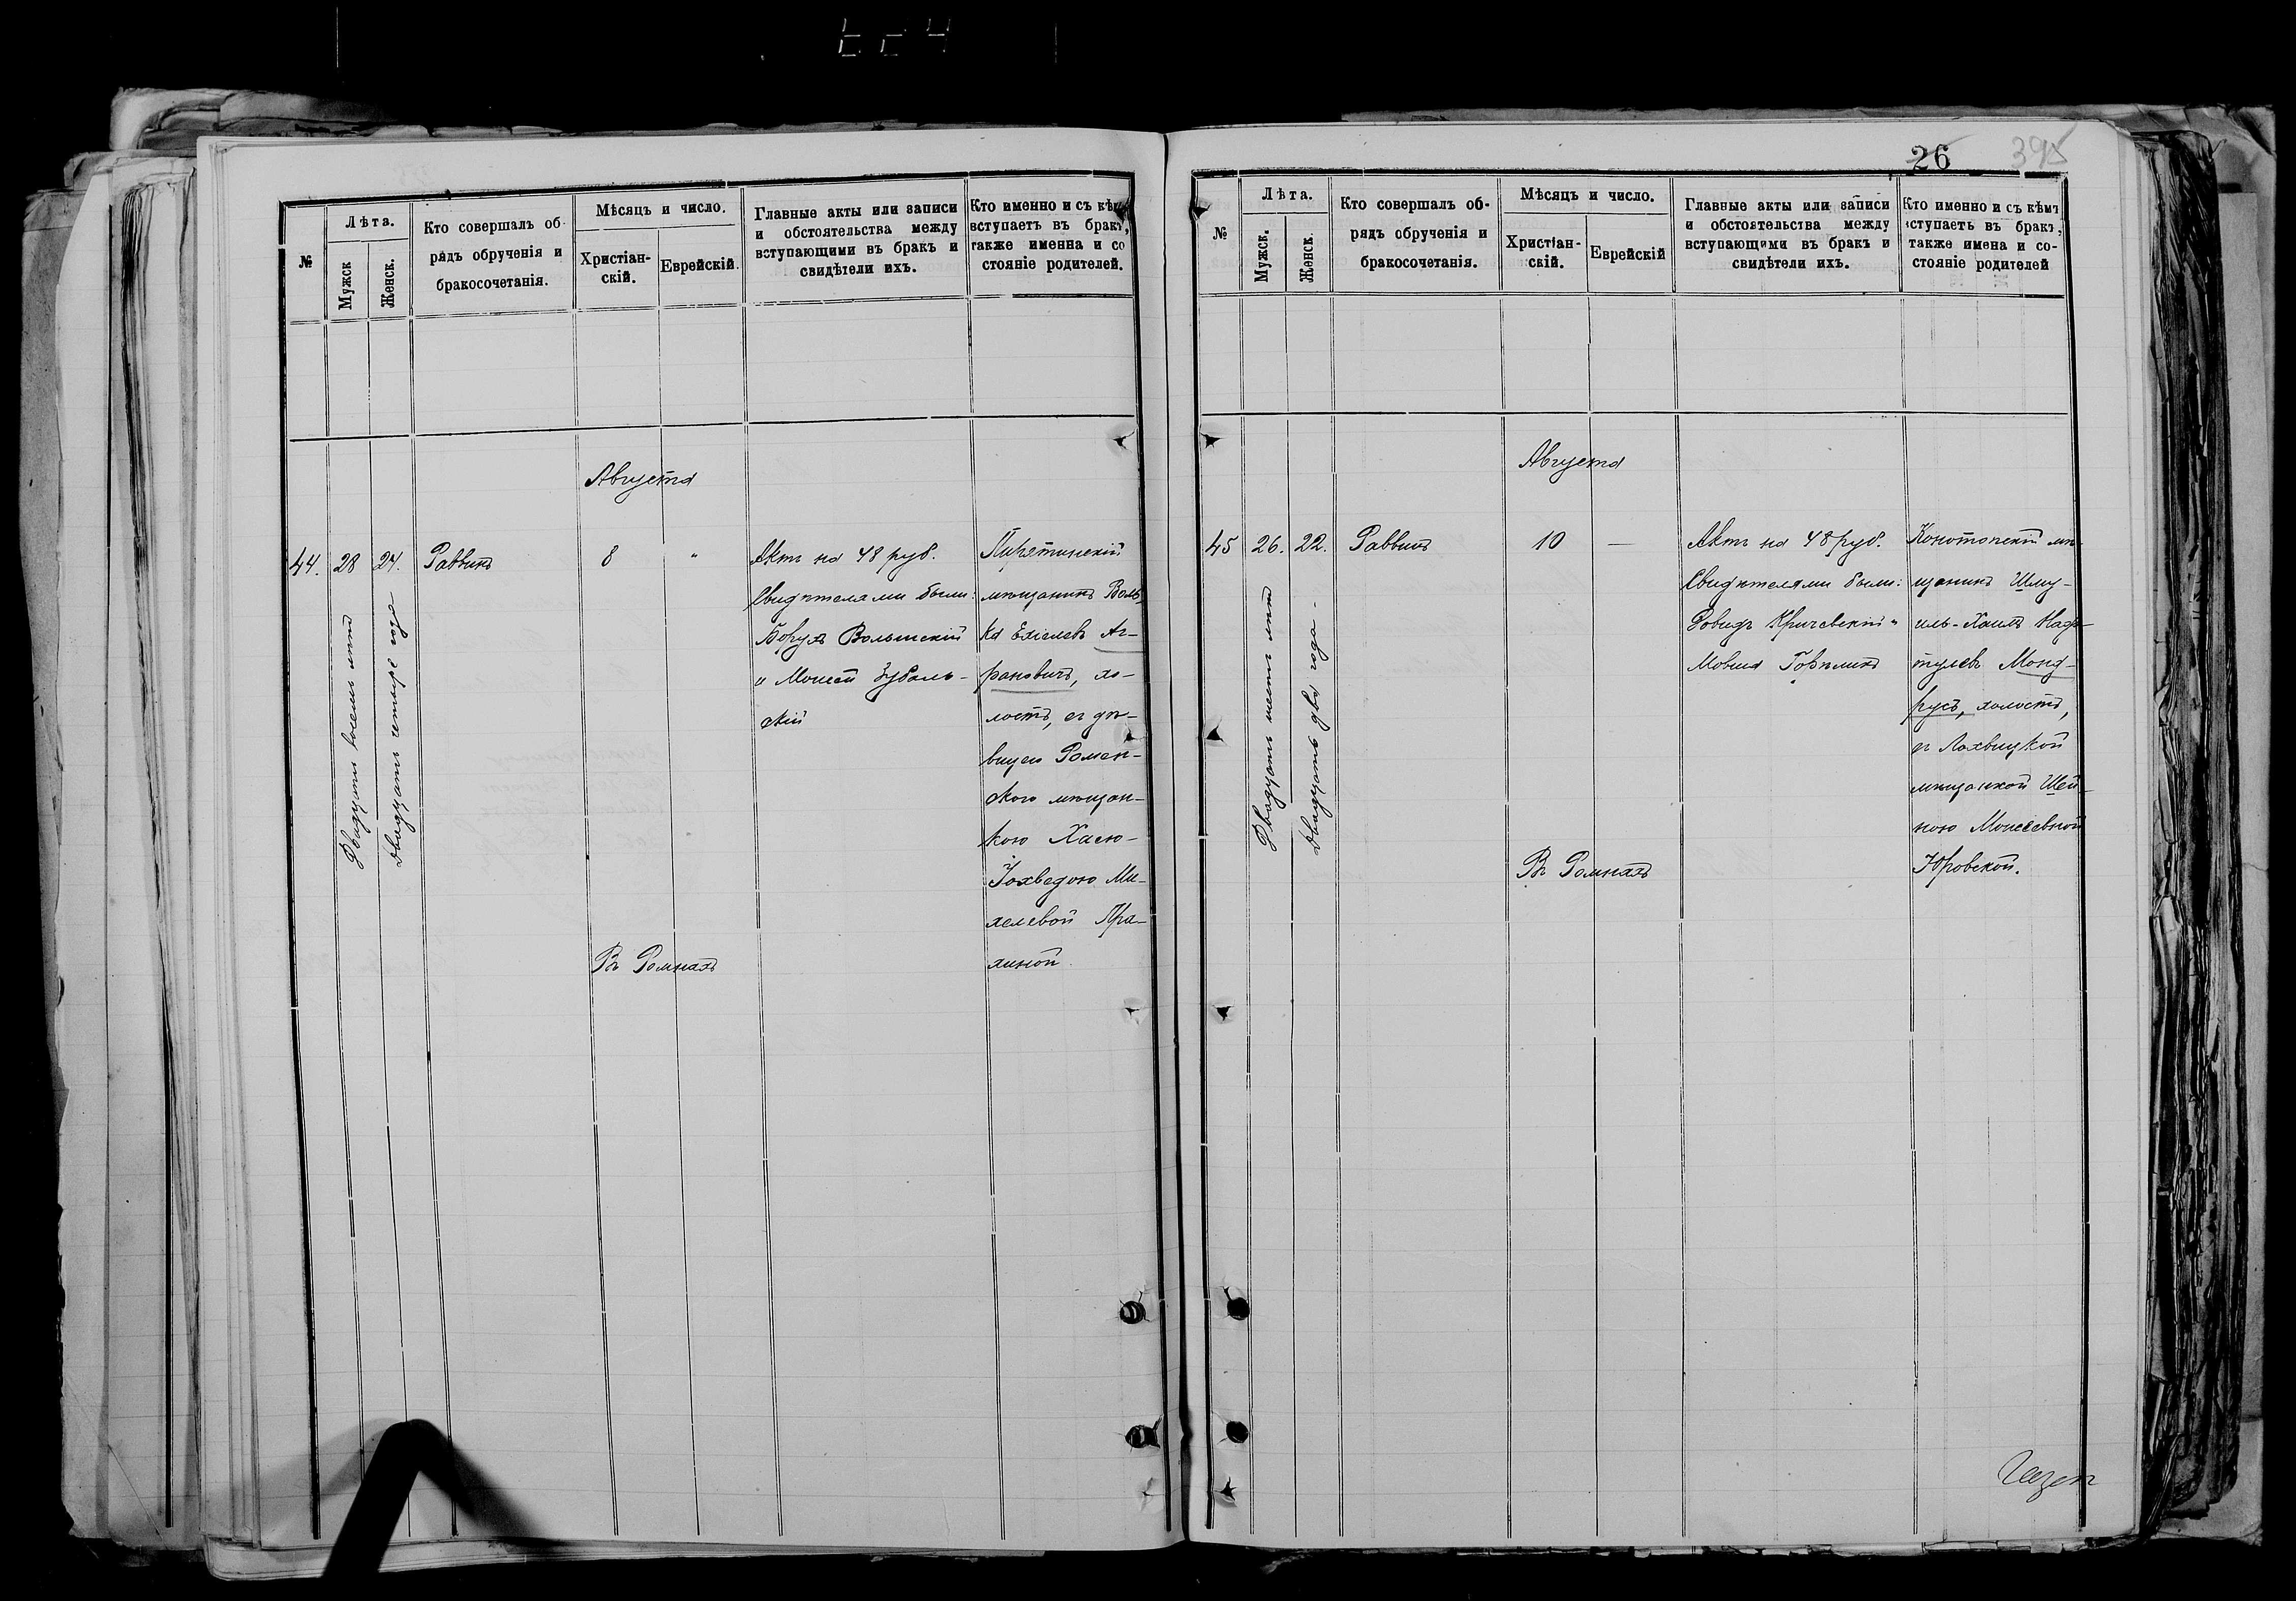 26
395
№
Лѣта.
Мужск
Женск.
Кто совершалъ об-
рядъ обрученія и
бракосочетанія.
Мѣсяцъ и число.
Христіан-
скій.
Еврейскій.
Главные акты или записи
и обстоятельства между
вступающими въ бракъ и
свидѣтели ихъ.
Кто именно и съ кѣмъ
вступаетъ въ бракъ,
также именна и со
стояніе родителей.
Августа
44.
28
Двадцать восемь лѣтъ
24.
двадцать четыре года
Раввинъ
8
"
Въ Ромнахъ
Актъ на 48 руб.
Свидѣтелями были:
Борухъ Волынскій
и Моисей Зубаль-
скій
Пирятинскій
мѣщанинъ Воль-
ка Ехіелевъ Аг-
рановичъ, хо-
лостъ, съ дѣ-
вицею Ромен-
скою мѣщан-
кою Хасею-
Іохведою Ми-
хелевой Пра-
хиной
№
Лѣта.
Мужск.
Женск.
Кто совершалъ об-
рядъ обрученія и
бракосочетанія.
Мѣсяцъ и число.
Христіан-
скій.
Еврейскій
Главные акты или записи
и обстоятельства между
вступающими въ бракъ и
свидѣтели ихъ.
Кто именно и съ кѣмъ
вступаетъ въ бракъ,
также имена и со-
стояніе родителей
Августа
45
26.
Двадцать шесть лѣтъ
22.
двадцать два года -
Раввинъ
10
—
Въ Ромнахъ
Актъ на 48 руб.
Свидѣтелями были:
Довидъ Кричевскій и
Мовша Горѣликъ
Конотопскій мѣ-
щанинъ Шму-
иль-Хаимъ Наф-
тулевъ Монд-
русъ, холостъ,
съ Лохвицкой
мѣщанкой Шей-
ною Моисеевной
Юровской.